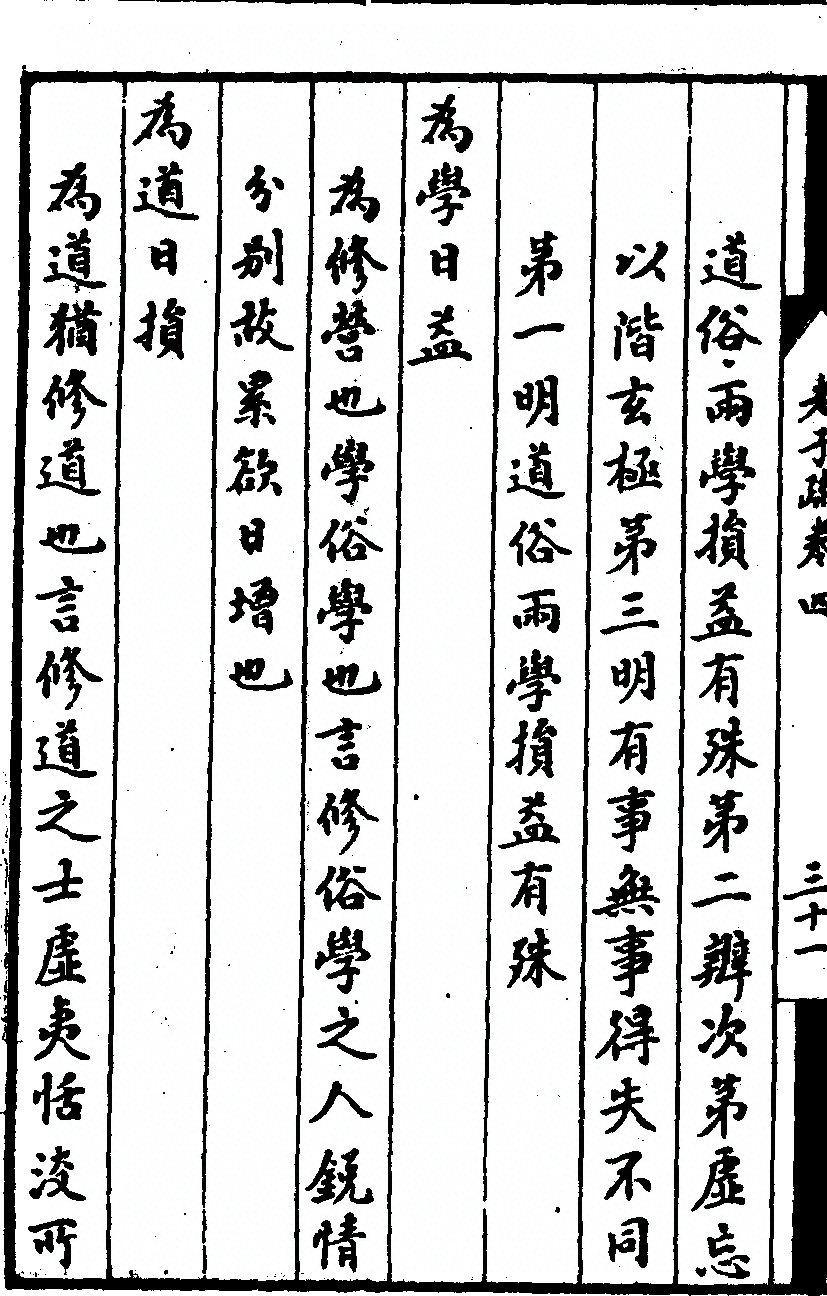 老子疏卷四
三十一
道俗兩學損益有殊第二辯次第虛忘
以階玄極第三明有事無事得失不同
第一明道俗兩學損益有殊
為學日益
為修營也學俗學也言修俗學之人銳情
分別故累欲日增也
為道日損
為道猶修道也言修道之士虛夷恬淡所